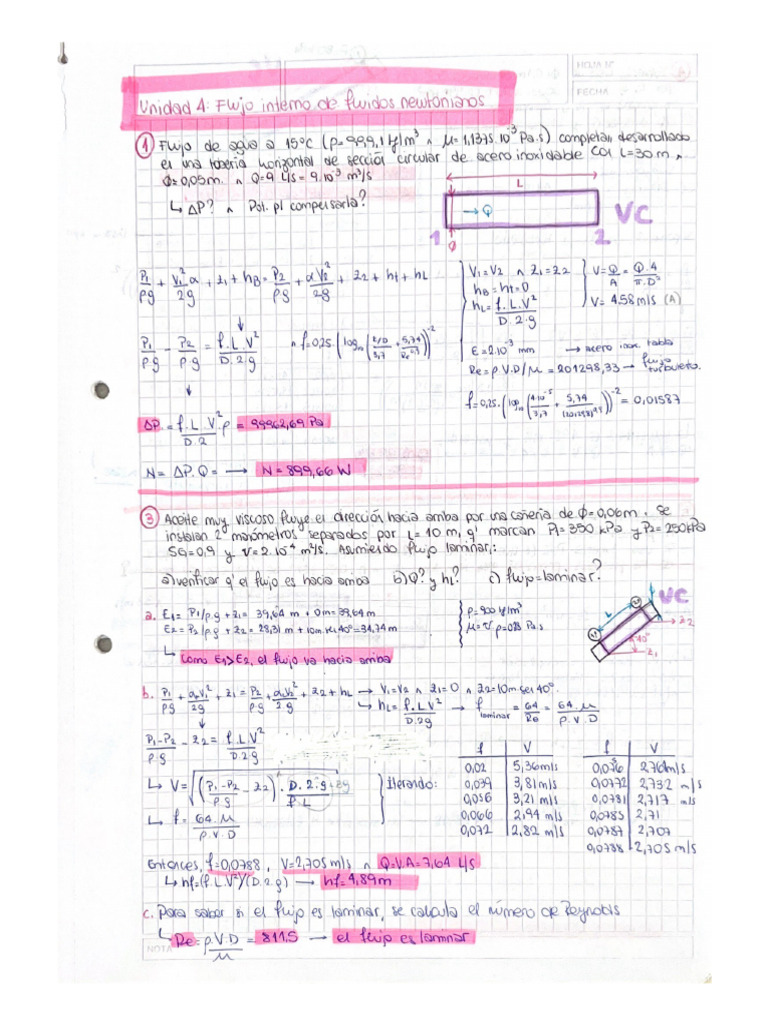 HOJA Nº
FECHA
Unidad 4: Flujo interno de fluidos newtonianos
① Flujo de agua a 15°C (ρ=999,1 kg/m³ ∧ μ=1,1375.10⁻³ Pa.s) completam. desarrollado
en una tubería horizontal de sección circular de acero inoxidable con L=30m ∧
Φ=0,05m. ∧ Q=9 L/s = 9.10⁻³ m³/s
↳ ΔP? ∧ Pot. p/ compensarla?
L
→ Q
VC
1
2
Φ
P₁/ρg + V₁²/2g α + z₁ + hB = P₂/ρg + αV₂²/2g + z₂ + ht + hL
V₁=V₂ ∧ z₁=z₂
hB = ht = 0
hL = f.L.V²/D.2.g
V = Q/A = Q.4/π.D²
V= 4.58 m/s (A)
P₁/ρg - P₂/ρg = f.L.V²/D.2.g
∧ f=0,25.(log₁₀(ε/D/3,7 + 5,74/Re⁰·⁹))⁻²
ε=2.10⁻³ mm → acero inox. tabla
Re=ρ.V.D/μ = 201298,33 → flujo turbulento
f=0,25.(log₁₀(4.10⁻⁵/3,7 + 5,74/(201298)⁰·⁹))⁻² = 0,01587
ΔP = f.L.V²/D.2 . ρ = 99962,69 Pa
N = ΔP.Q = → N = 899,66 W
③ Aceite muy viscoso fluye en dirección hacia arriba por una cañería de Φ=0,06m. Se
instalan 2 manómetros separados por L=10m, q' marcan P₁=350 kPa y P₂=250kPa
SG=0,9 y ν=2.10⁻⁴ m²/s. Asumiendo flujo laminar,:
a) verificar q' el flujo es hacia arriba b) Q? y hL? c) flujo=laminar?
a. E₁= P₁/ρ.g + z₁ = 39,64 m + 0m = 39,64m
E₂= P₂/ρ.g + z₂ = 28,31m + 10m.sen 40° = 34,74m
↳ como E₁>E₂, el flujo va hacia arriba
ρ=900 kg/m³
μ=ν.ρ=0,18 Pa.s
VC
L
40°
z₂
z₁
b. P₁/ρg + α₁V₁²/2g + z₁ = P₂/ρg + α₂V₂²/2g + z₂ + hL → V₁=V₂ ∧ z₁=0 ∧ z₂=10m.sen 40°
↳ hL = f.L.V²/D.2g → f laminar = 64/Re = 64.μ/ρ.V.D
P₁-P₂/ρ.g - z₂ = f.L.V²/D.2g
↳ V = √((P₁-P₂/ρg - z₂).D.2.g/f.L)
↳ f = 64.μ/ρ.V.D
Iterando:
f V f V
0,02 5,36m/s 0,076 2,76m/s
0,039 3,81m/s 0,0772 2,732 m/s
0,056 3,21 m/s 0,0781 2,717 m/s
0,066 2,94 m/s 0,0785 2,71
0,072 2,82 m/s 0,0787 2,707
0,0788 2,705 m/s
Entonces, f=0,0788, V=2,705m/s ∧ Q=V.A=7,64 L/s
↳ hf=(f.L.V²)/(D.2.g) → hf=4,89m
c. Para saber si el flujo es laminar, se calcula el número de Reynolds
↳ Re = ρ.V.D/μ = 811,5 → el flujo es laminar
NOTA